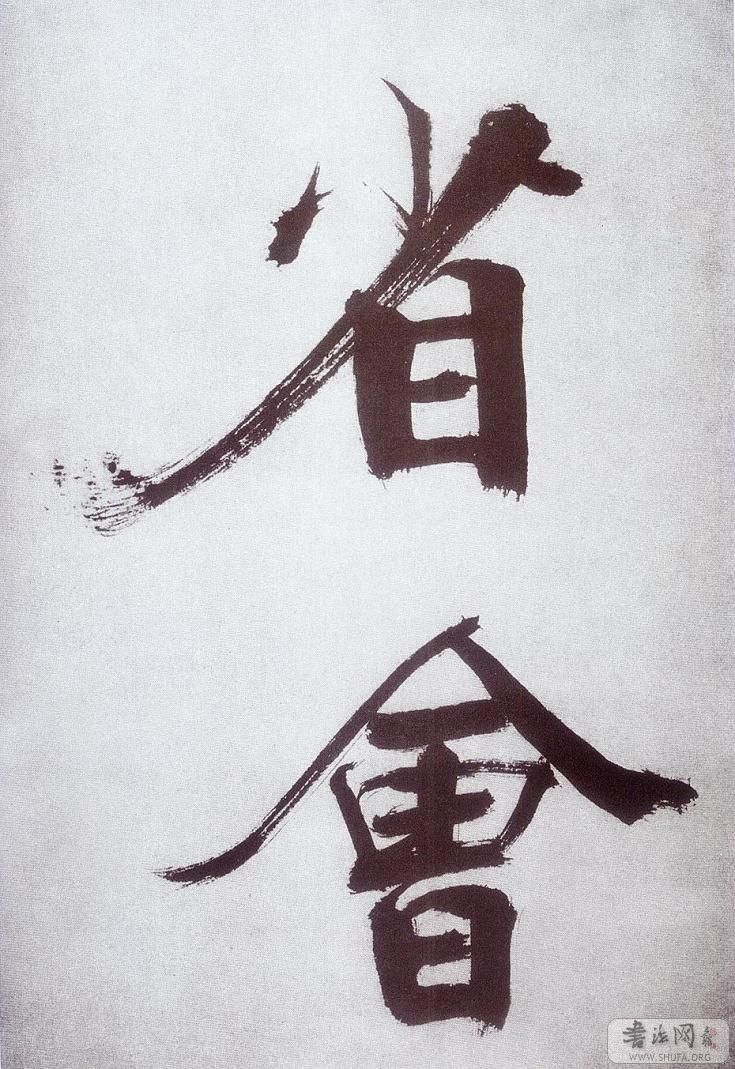 省
會
書法网
WWW.SHUFA.ORG